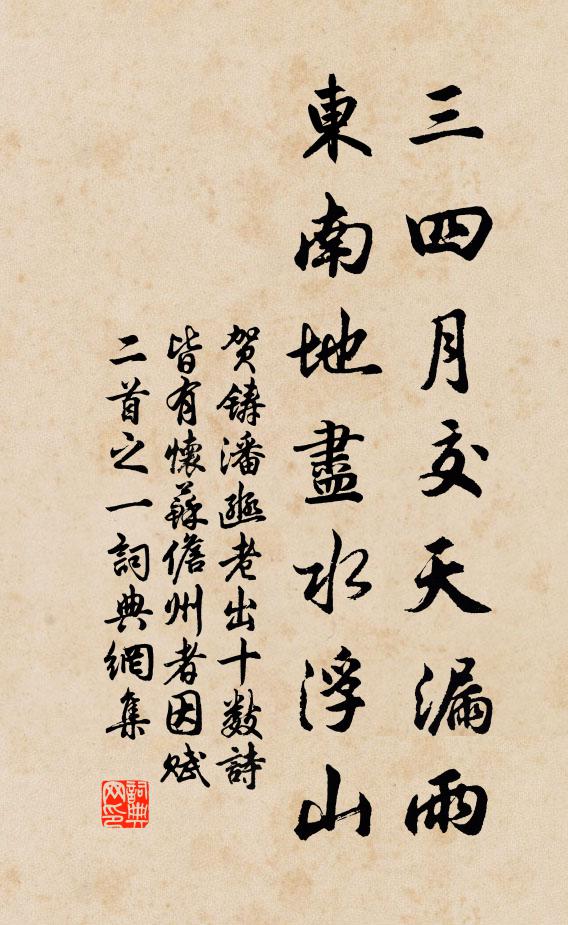 三四月交天漏雨
東南地盡水浮山
賀鑄潘邠老出十數詩
皆有懷蘇儋州者因賦
二首之一詞典網集
詞典
网印